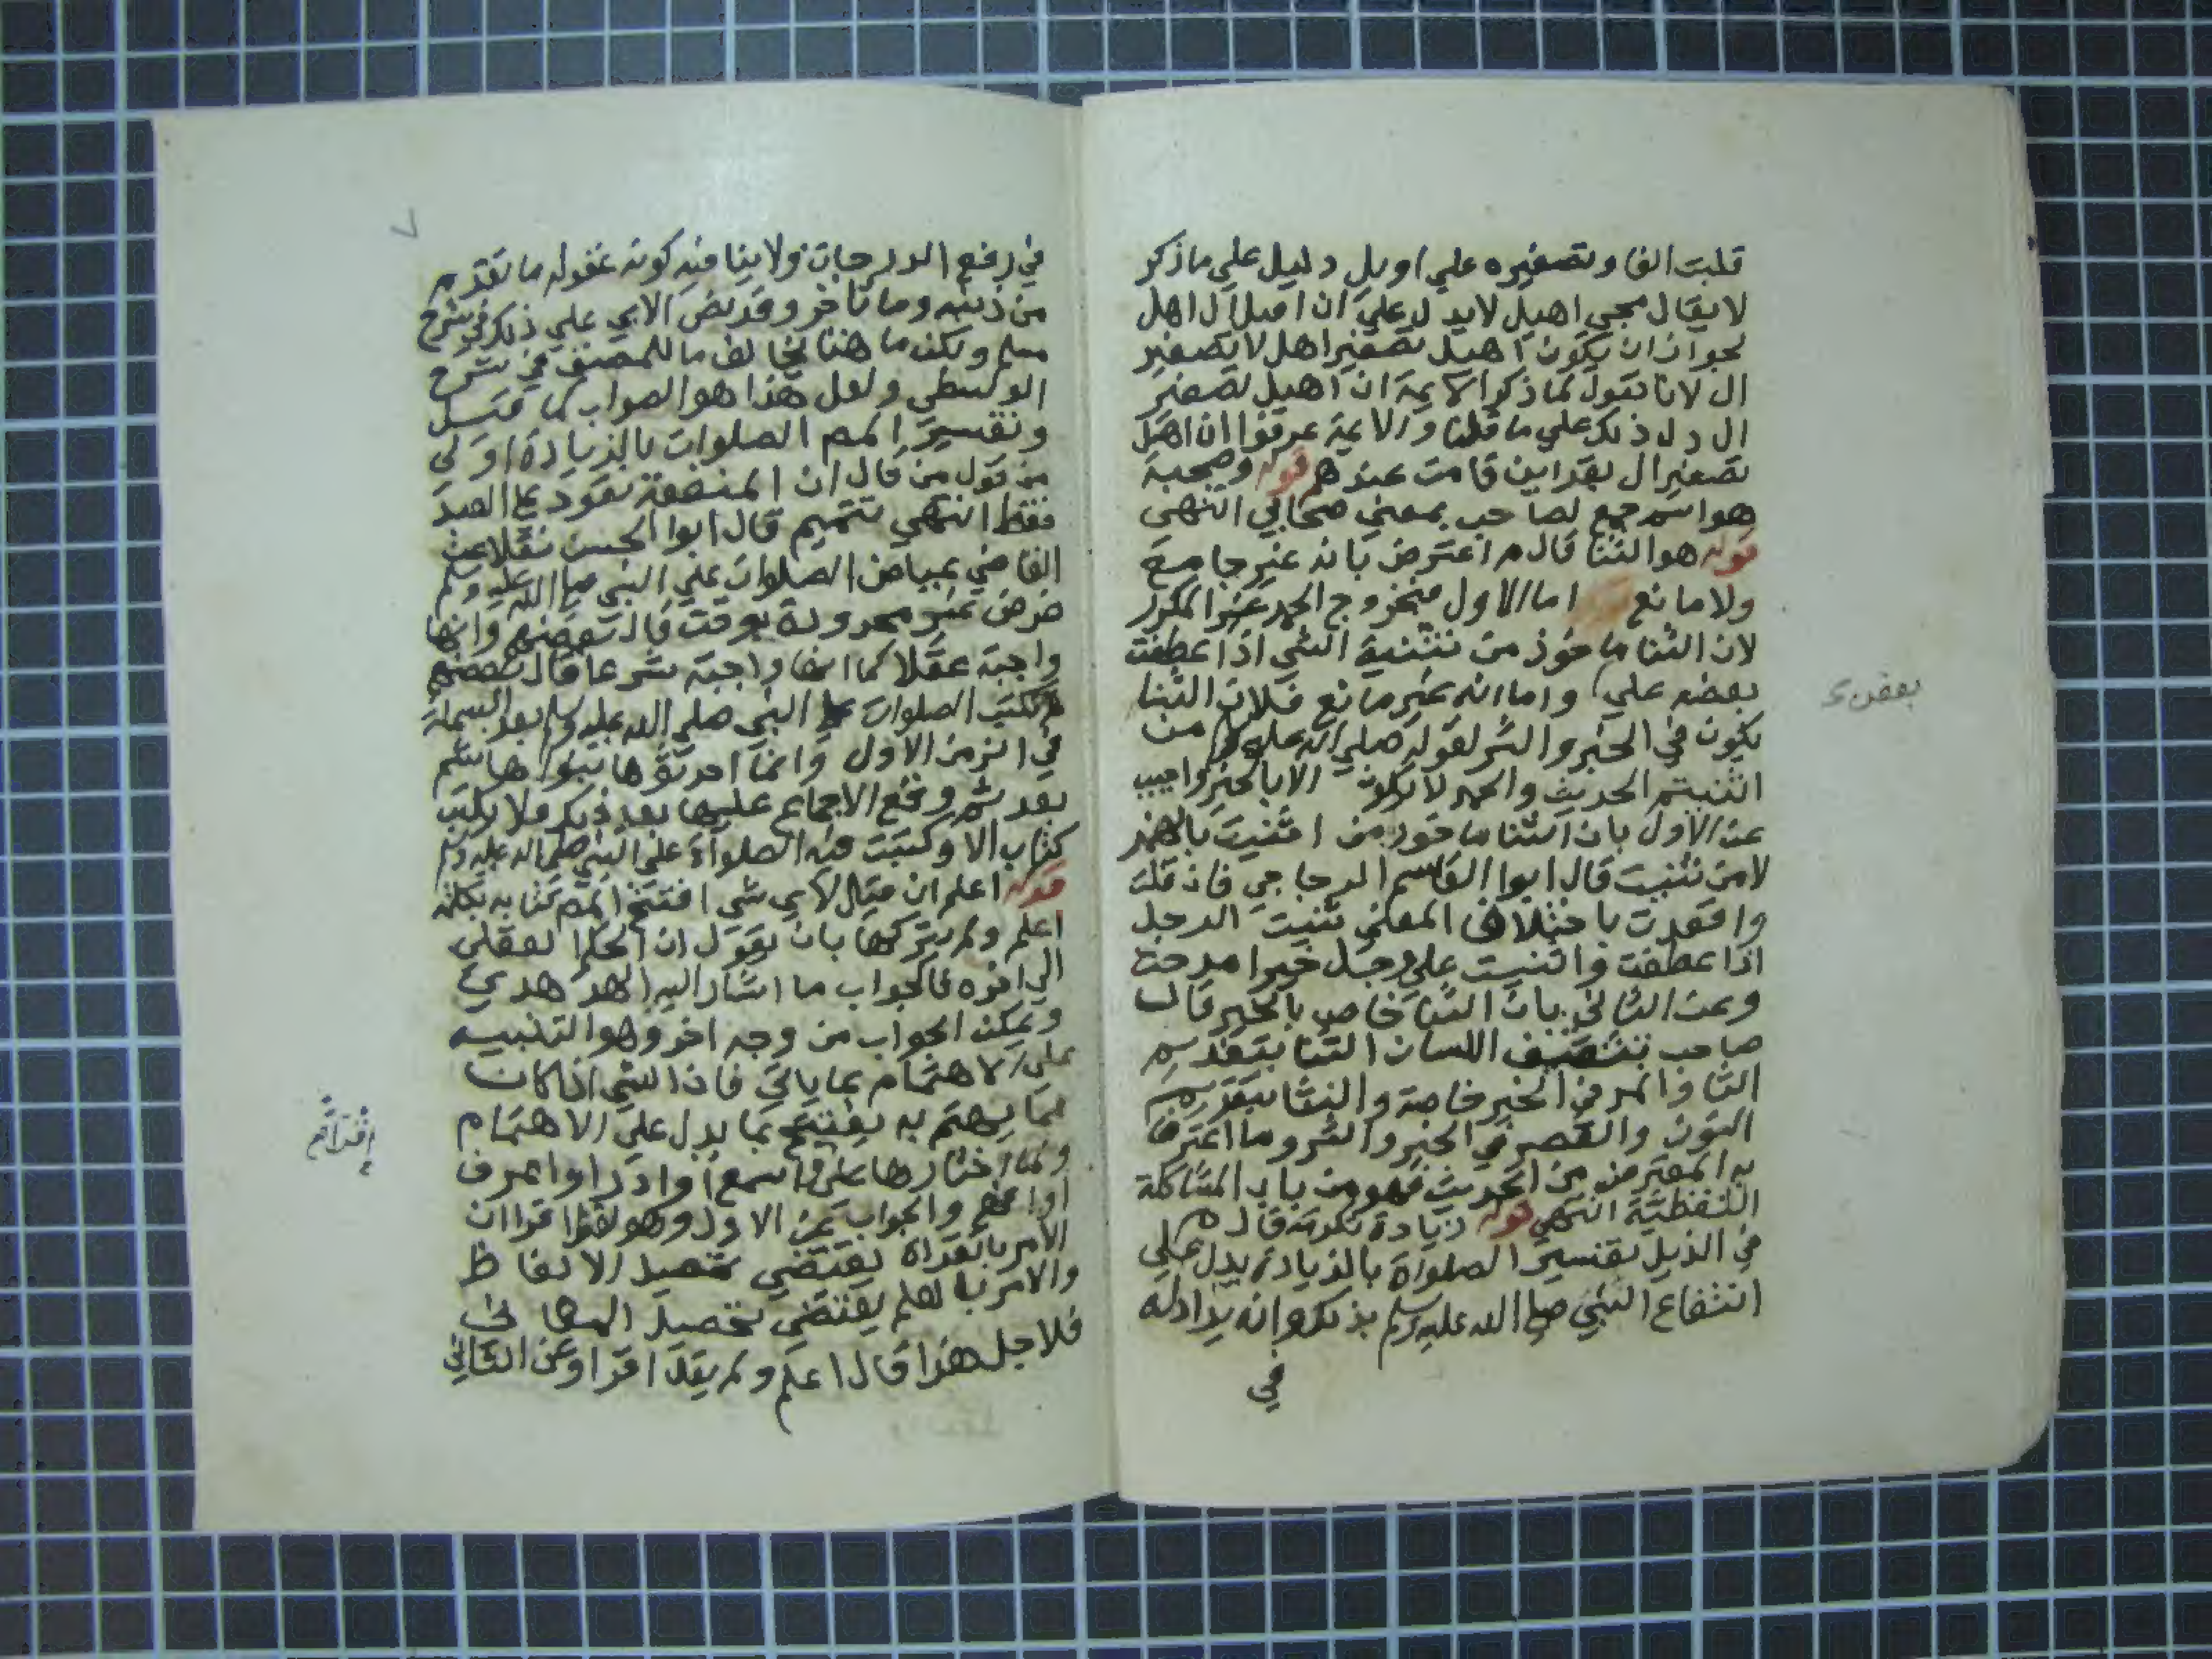 قلبت الفا وتصغيره علي اويل دليل علي ما ذكر
لا يقال مجي اهيل لا يدل علي ان اصل ال اهل
لجواز ان يكون اهيل تصغير اهل لا تصغير
ال لانا نقول لما ذكر الايمة ان اهيل تصغير
ال دل ذلك علي ما قلنا والايمة عرفوا ان اهيل
تصغير ال بقراين قامت عندهم قوله وصحبه
هو اسم جمع لصاحب بمعني صحابي انتهى
قوله هو الثنا قال م اعترض بانه غير جامع
ولا مانع اما الاول فبخروج الحمد غير المكرر
لان الثنا ماخوذ من تثنية الشي اذا عطفت
بعضه علي واما انه غير مانع فلان الثنا
بعض
يكون في الخير والشر لقوله صلي الله عليه وسلم من
اثنيتم الحديث والحمد لا يكون الا بالخير واجيب
عن الاول بان الثنا ماخوذ من اثنيت بالهمز
لا من ثنيت قال ابوا القاسم الزجاجي فان قلت
وافعدت باختلاف المعني ثنيت الرجل
اذا عطفت واثنيت علي رجل خيرا مدحته
وعن الثاني بان الثنا خاص بالخير قال
صاحب تثقيف اللسان الثنا بتقديم
الثا والمد في الخير خاصة والنثا بتقديم
النون والقصر في الخير والشر وما اعترض
به المعترض من الحديث فهو من باب المشاكلة
اللفظية انتهى قوله زيادة تكرمة قال م
في الذيل تفسير الصلواة بالزيادة يدل علي
انتفاع النبي صلي الله عليه وسلم بذلك وانه يزاد له
في
٧
في رفع الدرجات ولا ينافيه كونه غفر له ما تقدم
من ذنبه وما تاخر وقد نص الابي علي ذلك في شرح
مسلم ولكن ما هنا يخالف ما للمصنف في شرح
الوسطي ولعل هذا هو الصواب
وتفسير المص الصلوات بالزيادة اولي
من قول من قال ان المنفعة تعود علي العبد
فقط انتهى تتميم قال ابوا الحسن نقلا عن
القاضي عياض الصلوات علي النبي صلي الله عليه وسلم
فرض غير محدودة بوقت قال بعضهم وانها
واجبة عقلا كما انها واجبة شرعا قال بعضهم
لم تكتب الصلوات علي النبي صلي الله عليه وسلم بعد البسملة
في الزمن الاول وانما احدثوها بنوا هاشم
بعد ثم وقع الاجماع عليها بعد ذلك فلا يكتب
كتاب الا وكتبت فيه الصلواة علي النبي صلي الله عليه وسلم
قوله اعلم ان قيل لاي شي افتتح المص كتابه بكلمة
اعلم ولم يتركها بان يقول ان الحكم العقلي
الي اخره فالجواب ما اشار اليه الهدهدي
ويمكن الجواب من وجه اخر وهو التنبيه
علي الاهتمام بما ياتي فاذا الشي اذا كان
مما يهتم به يفتتح بما يدل علي الاهتمام
ولما اختارها علي اسمع او ادر او اعرف
او افهم والجواب عن الاول وهو لفظ اقرا ان
اقرا ثم
الامر بالقراة يقتضي تحصيل الالفاظ
والامر بالعلم يقتضي تحصيل المعاني
فلاجل هذا قال اعلم ولم يقل اقرا وعن الثاني